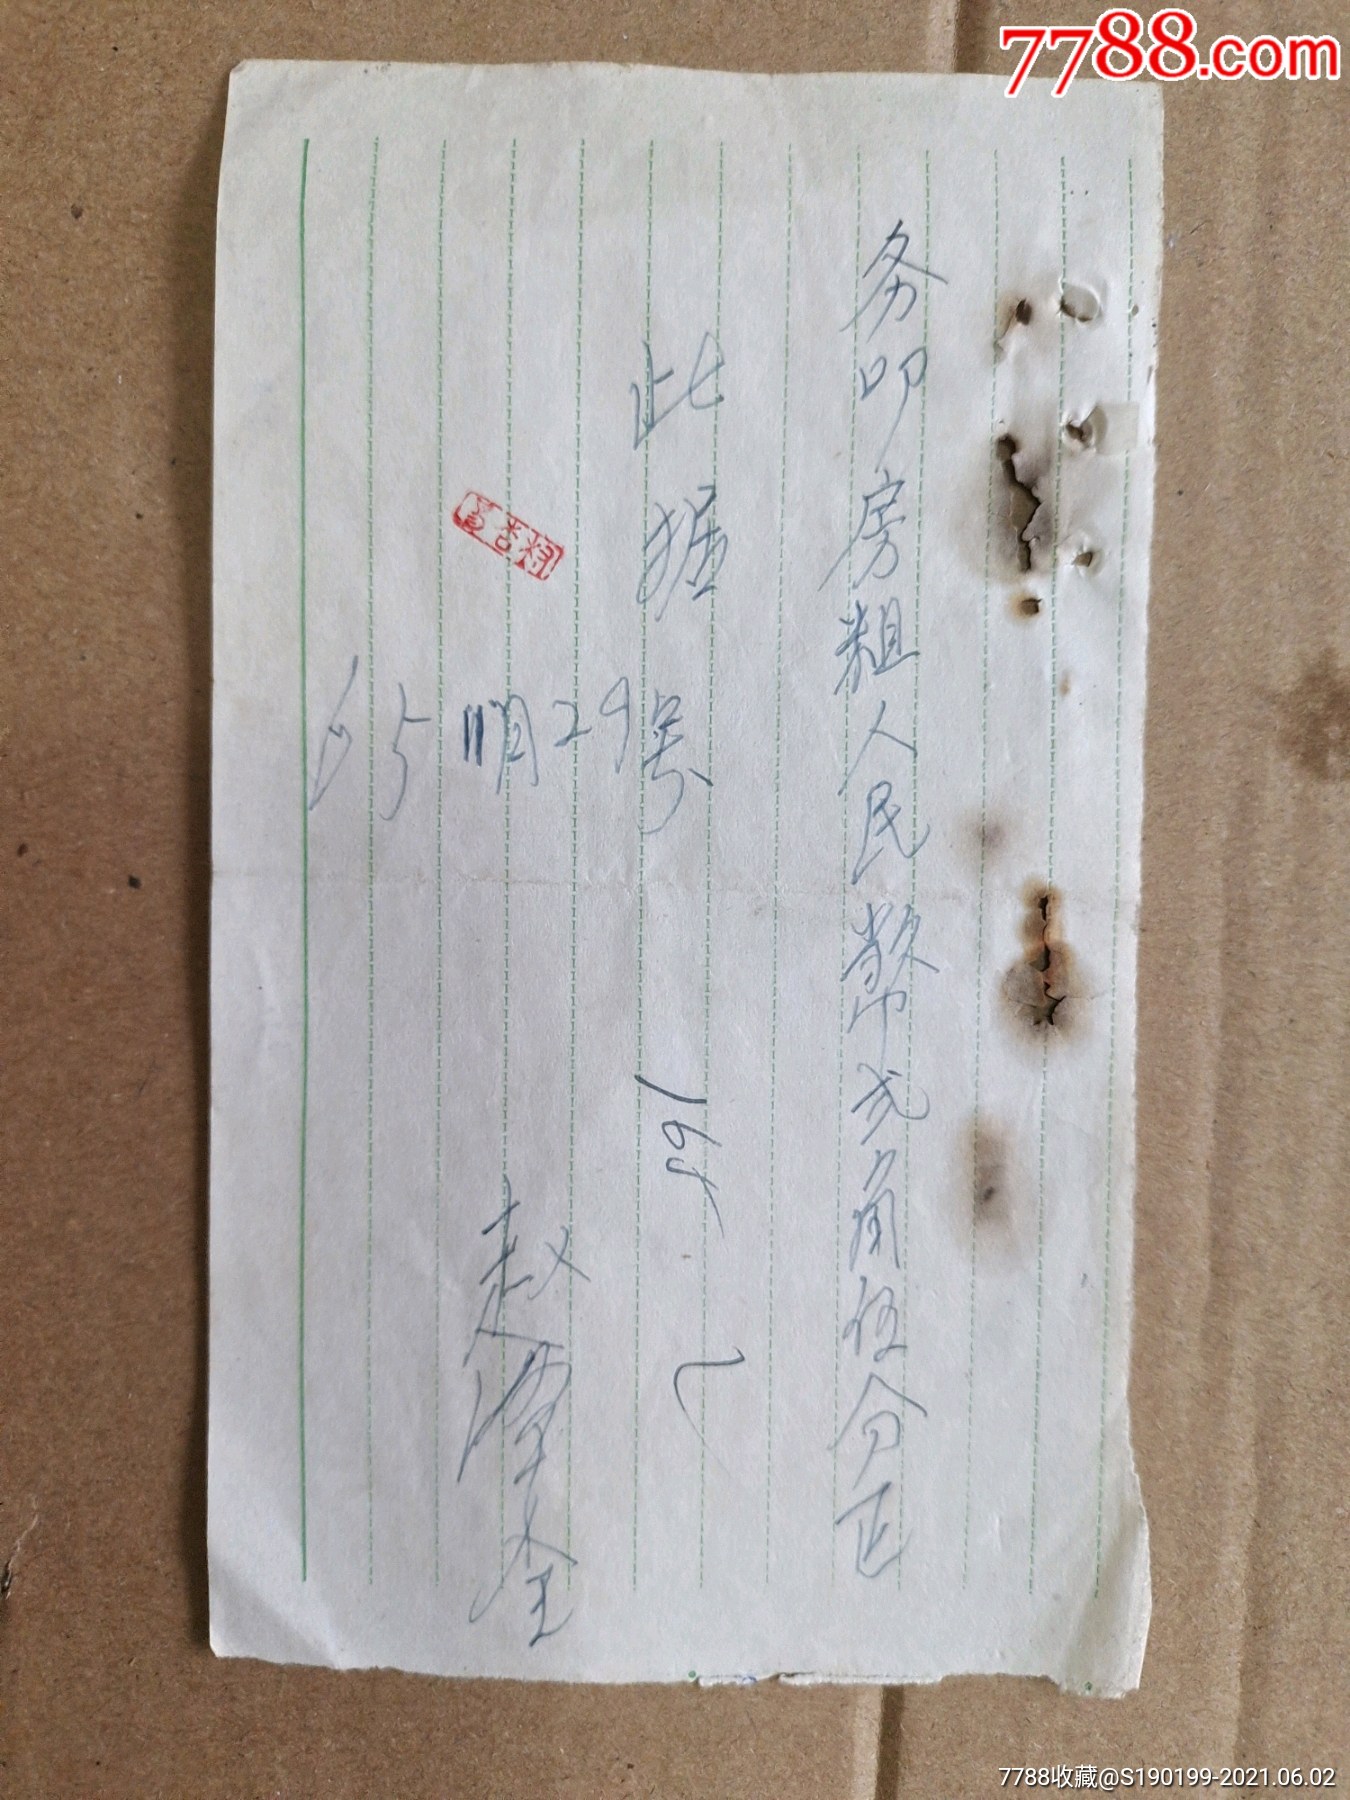 7788.com
务叩房粗人民幣弍角伍分正
此据
65 11月29号
赵
7788收藏@S190199-2021.06.02